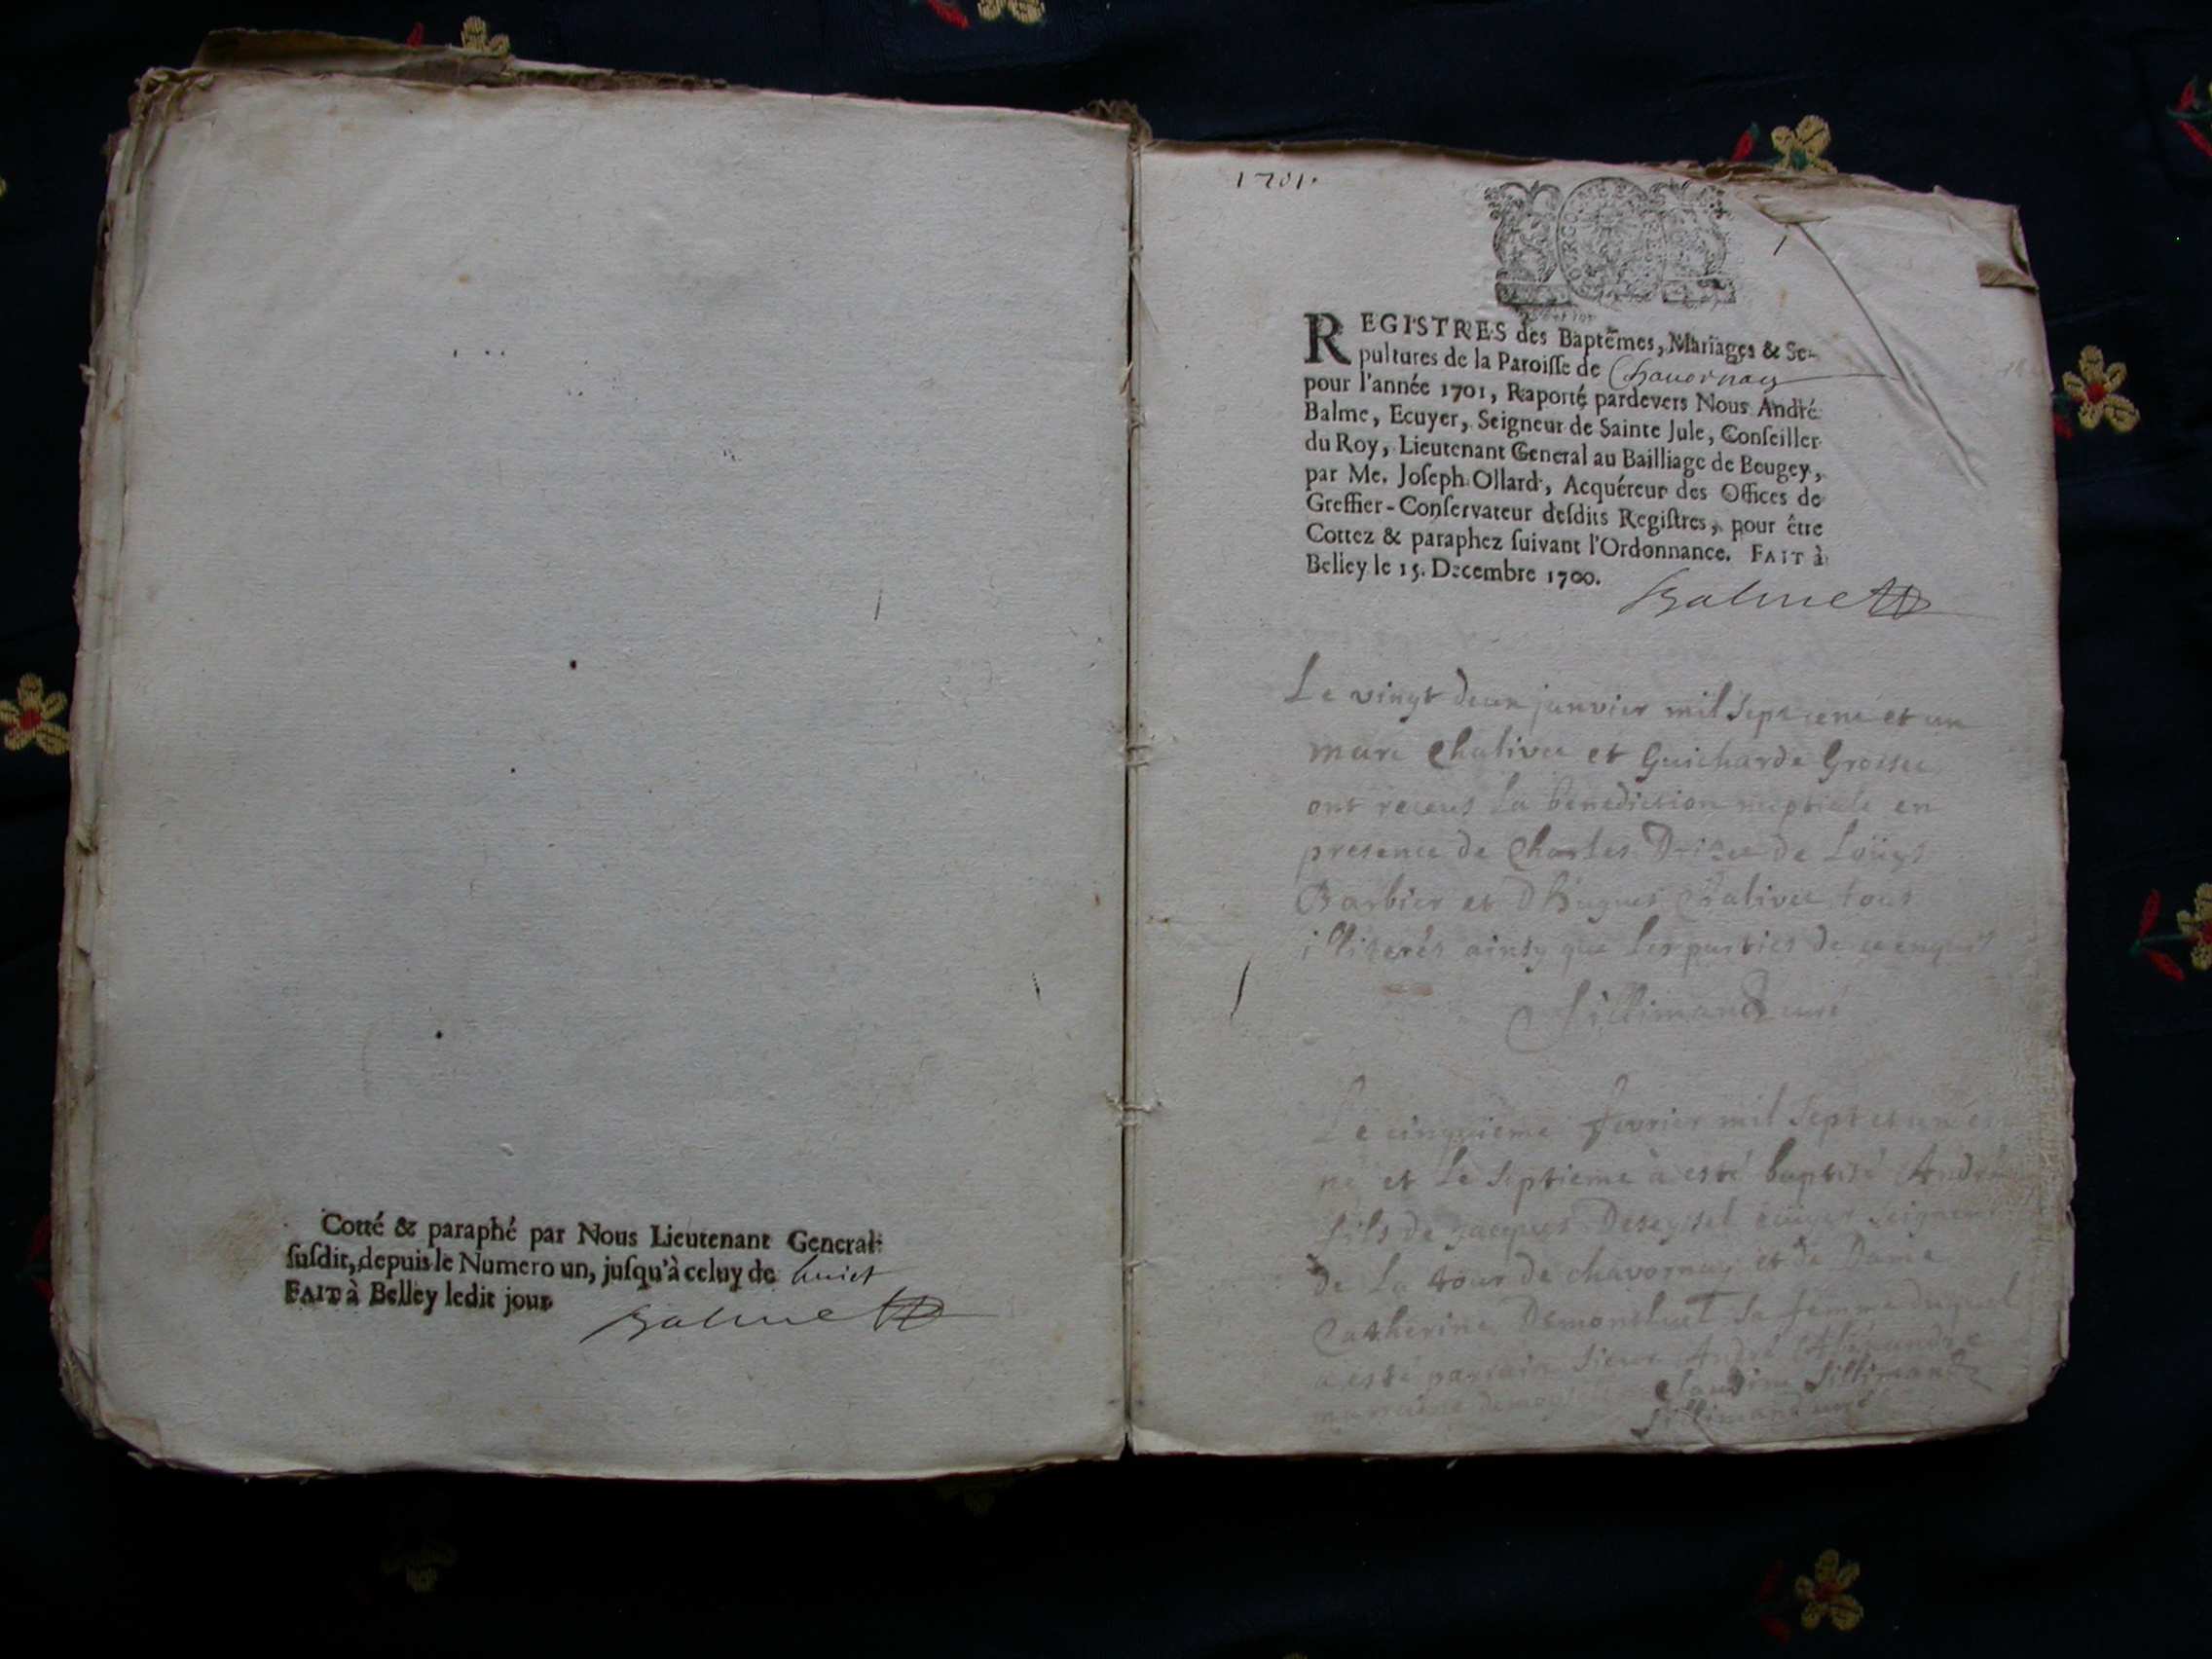 Cotté & paraphé par Nous Lieutenant General
ſuſdit, depuis le Numero un, juſqu'à celuy de huict
FAIT à Belley ledit jour
Balme
1701.
1
REGISTRES des Baptêmes, Mariages & Se-
pultures de la Paroiſſe de Chavornay
pour l'année 1701, Raporté pardevers Nous André
Balme, Ecuyer, Seigneur de Sainte Jule, Conſeiller
du Roy, Lieutenant General au Bailliage de Beugey,
par Me. Joſeph Ollard, Acquéreur des Offices de
Greffier-Conſervateur deſdits Regiſtres, pour être
Cottez & paraphez ſuivant l'Ordonnance. FAIT à
Belley le 15. Decembre 1700.
Balme
Le vingt deux janvier mil sept cent et un
marc Chalivet et Guicharde Grosset
ont receus la benediction nuptiale en
presence de Charles de Loüys
Barbier et D hugues Chalivet tous
illiterés ainsy que les parties de ce enquis
Sillimand curé
Le cinquieme fevrier mil sept et un est
né et le septieme a esté baptisé André
fils de jacques Deseyssel ecuyer seigneur
de la tour de chavornay et de Dame
Catherine Demontluel sa femme duquel
a esté parrain sieur André Alexandre
marraine Claudine Sillimand
Sillimand curé